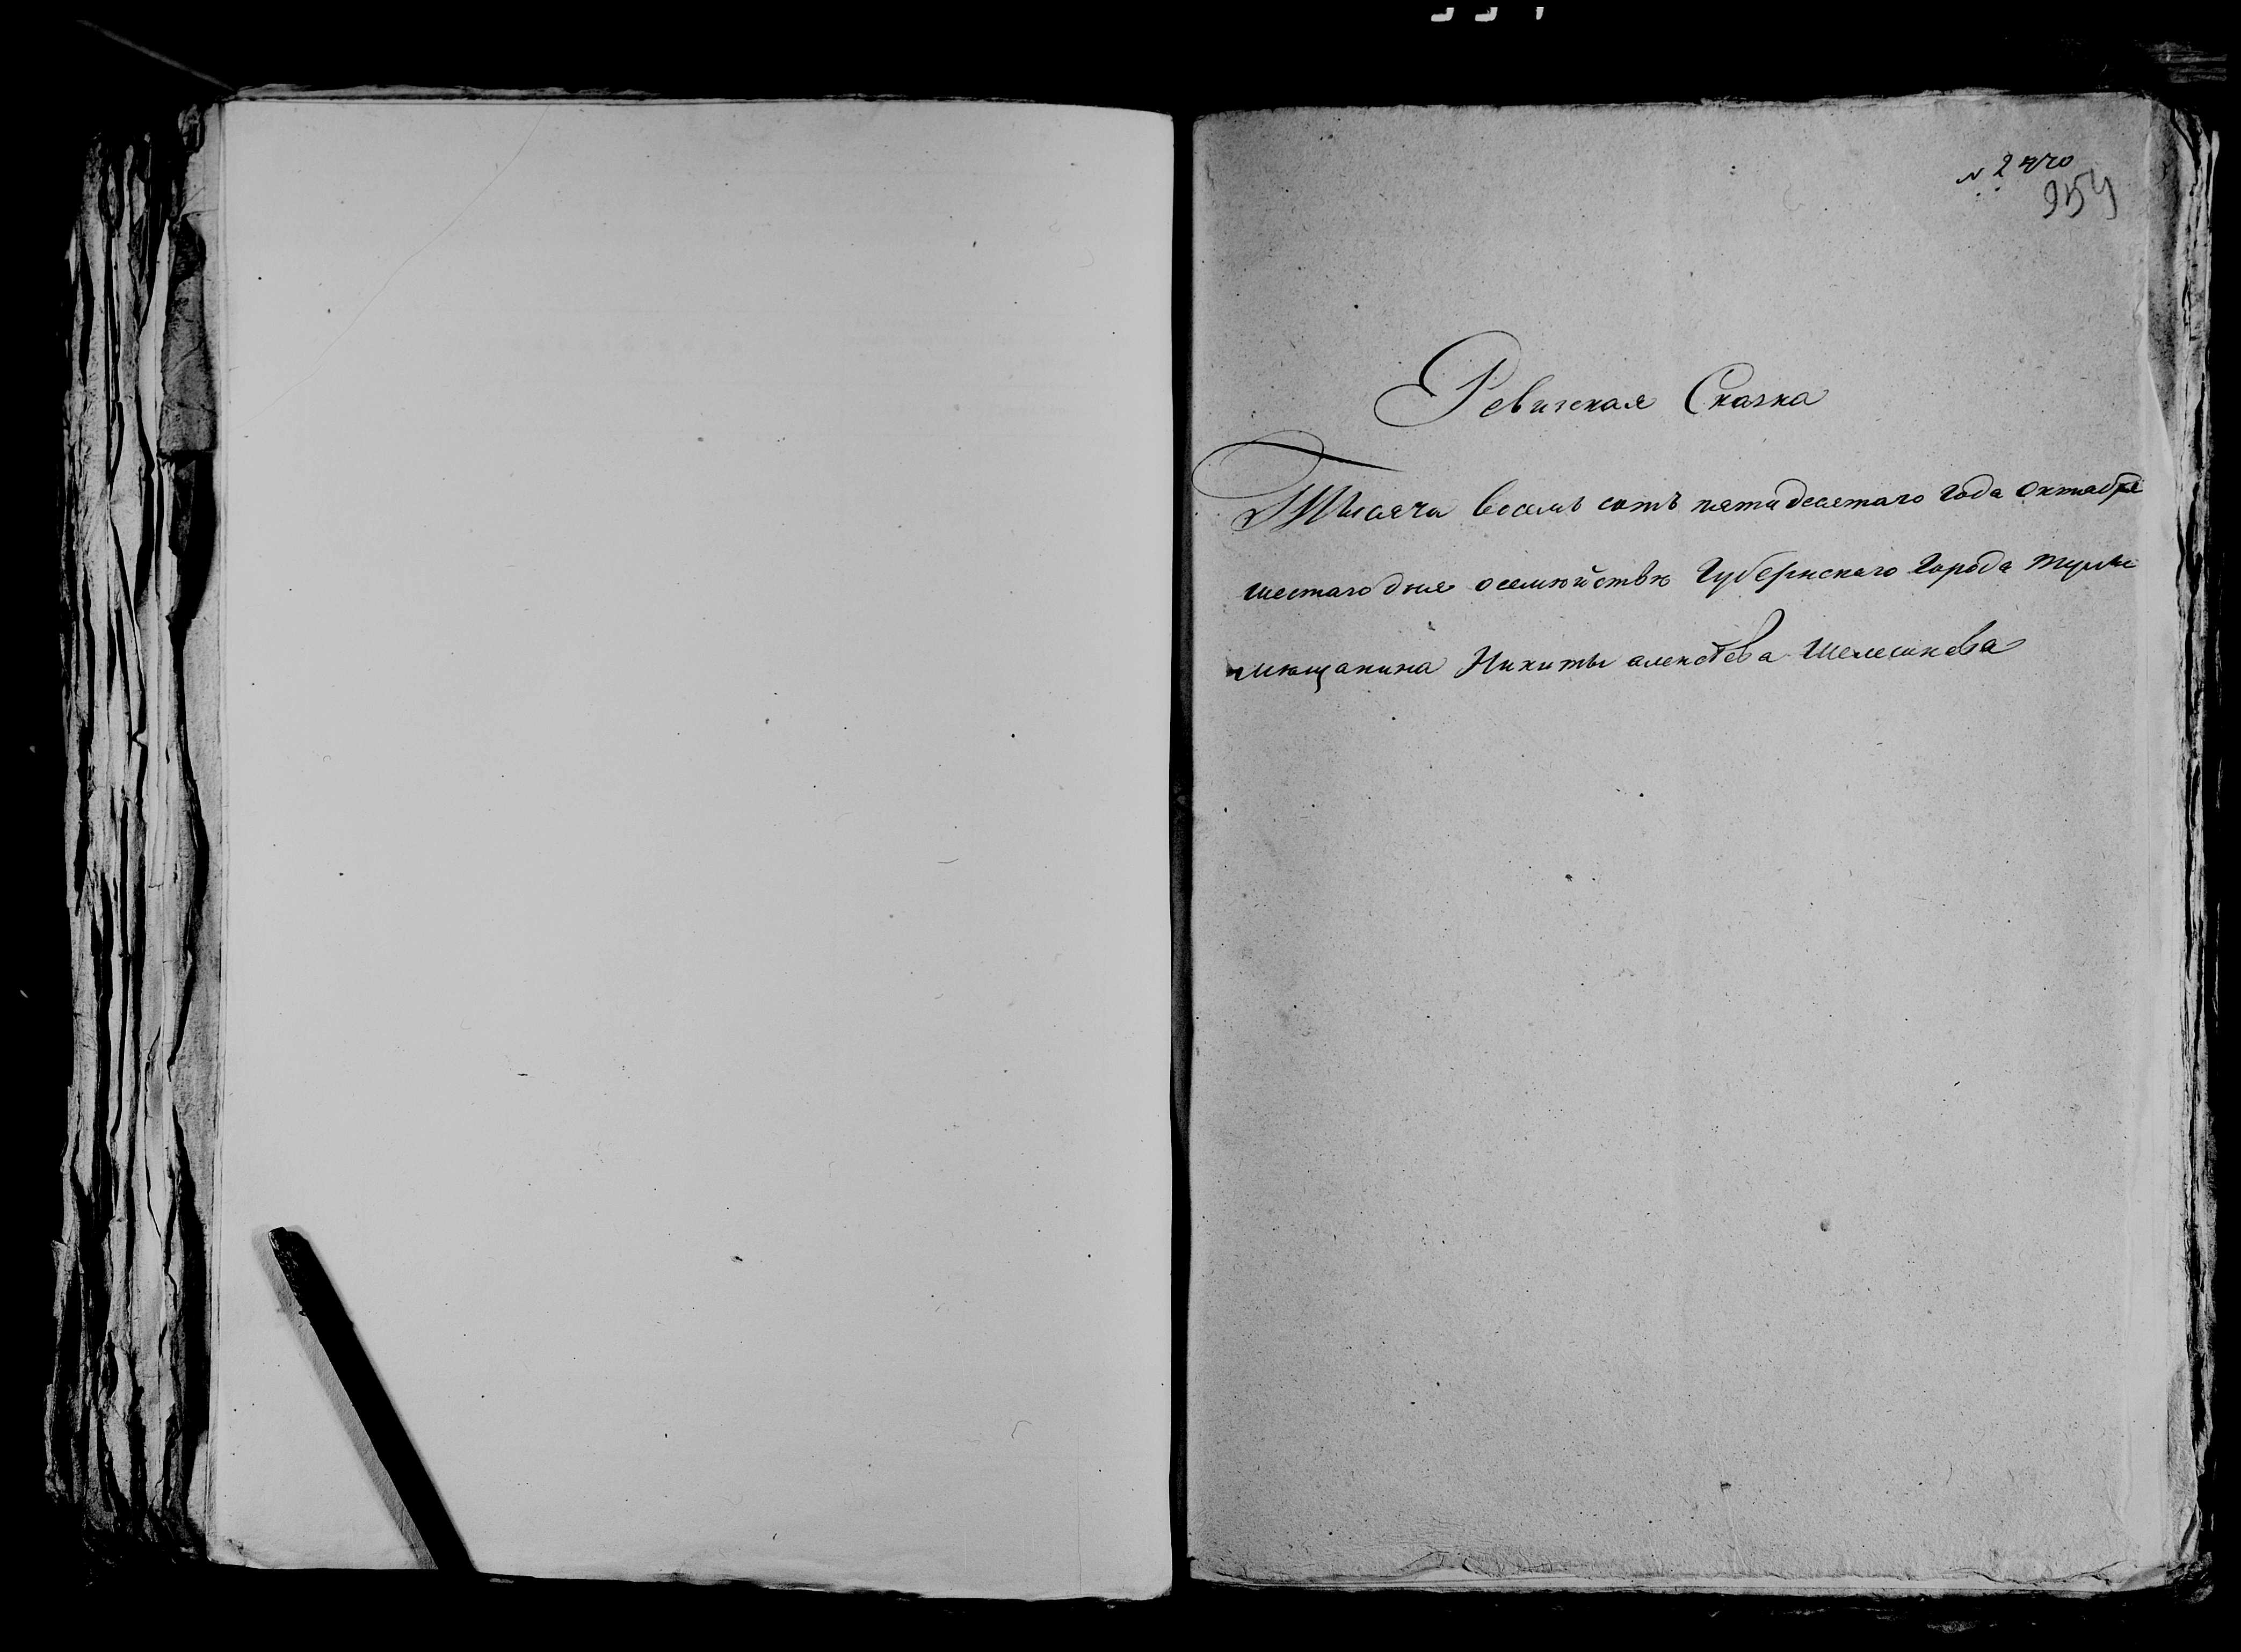 954
Ревизская Сказка
Тысяча восемь сотъ пятидесятаго года октября
шестаго дня о семѣйствѣ Губернскаго Города Тулы
мѣщанина Никиты алексѣева